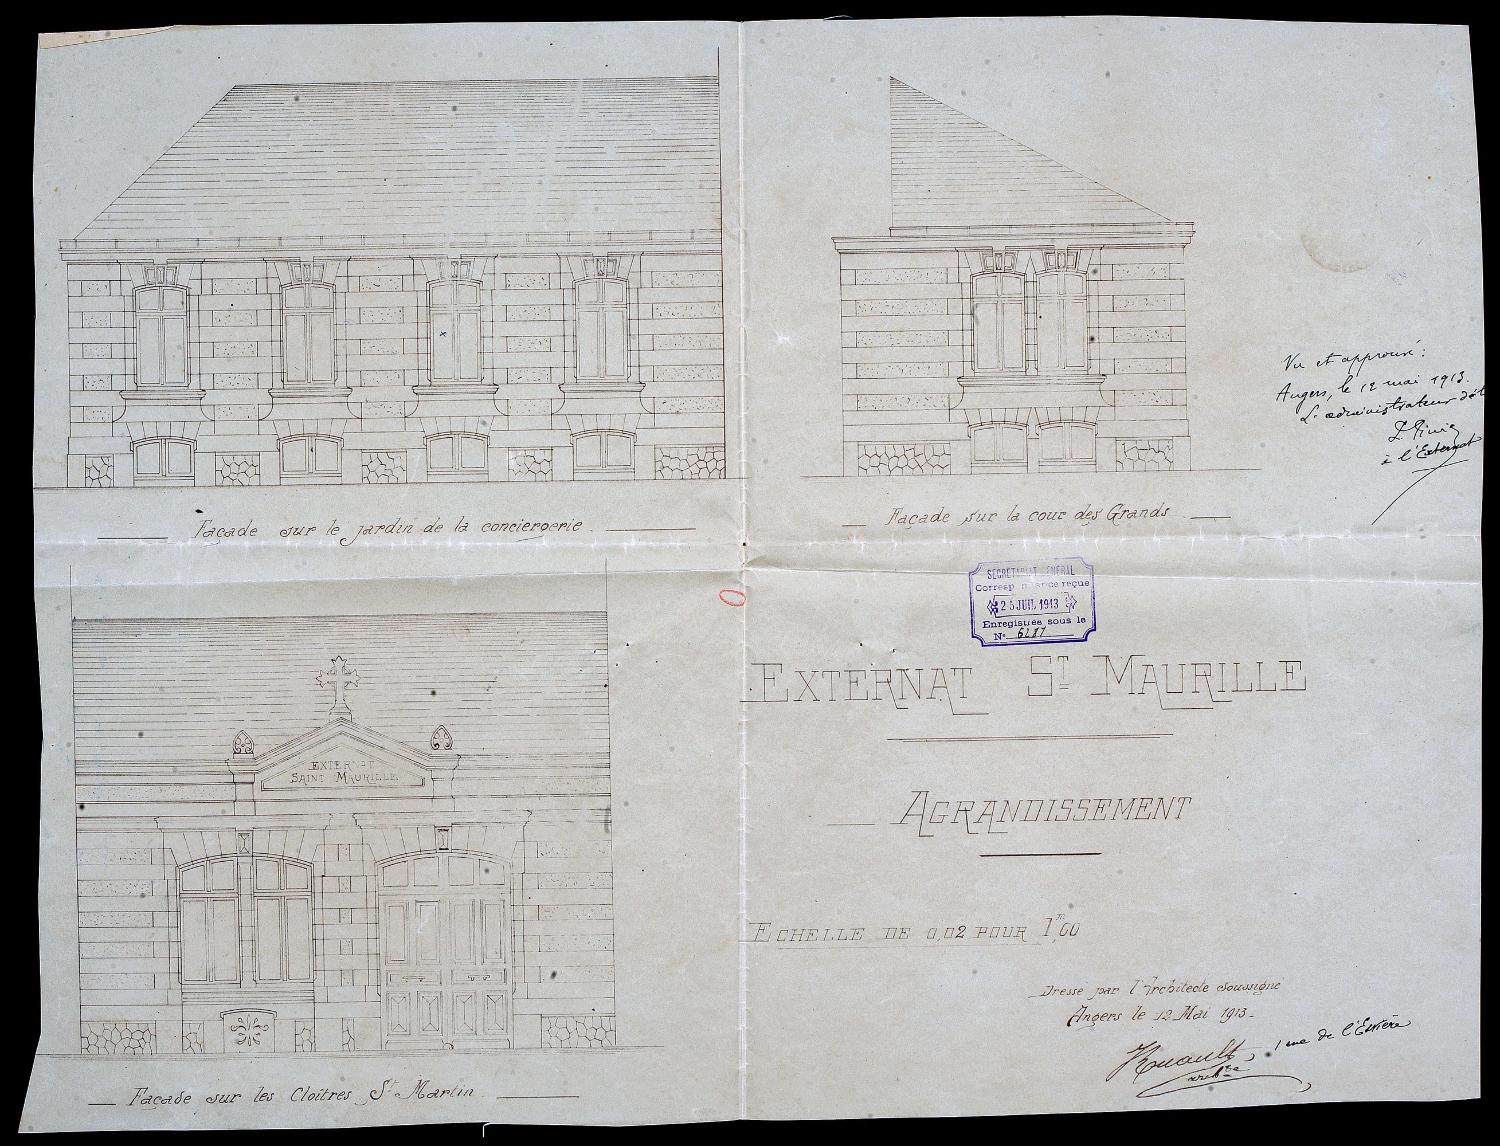 Façade sur le jardin de la conciergerie.
Façade sur la cour des Grands.
Vu et approuvé :
Angers, le 12 mai 1913.
L'administrateur
à l'Externat
SECRETARIAT GENERAL
Correspondance reçue
25 JUIL 1913
Enregistrée sous le
N°
EXTERNAT ST MAURILLE
AGRANDISSEMENT
ECHELLE DE 0,02 POUR 1m,00
Dressé par l'Architecte soussigné
Angers le 12 Mai 1913.
Ruault, 1 rue de l'Esvière
archte
EXTERNAT
SAINT MAURILLE
Façade sur les Cloîtres St Martin